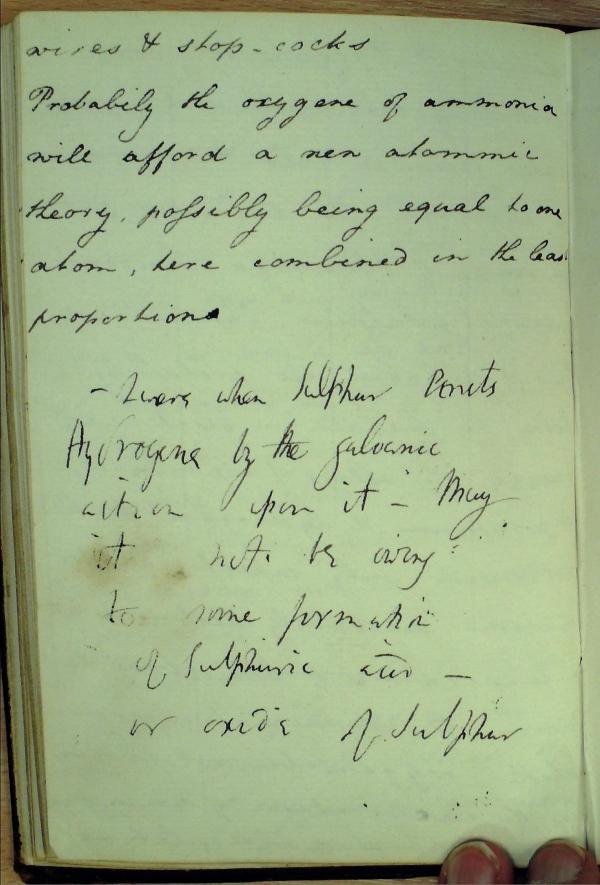 wires & stop-cocks
Probabily the oxygene of ammonia
will afford a new atommic
theory, possibly being equal to one
atom, here combined in the least
proportion
- when Sulphur emits
Hydrogene by the galvanic
action upon it - May
it not be owing
to some formation
of Sulphuric acid -
or oxide of Sulphur